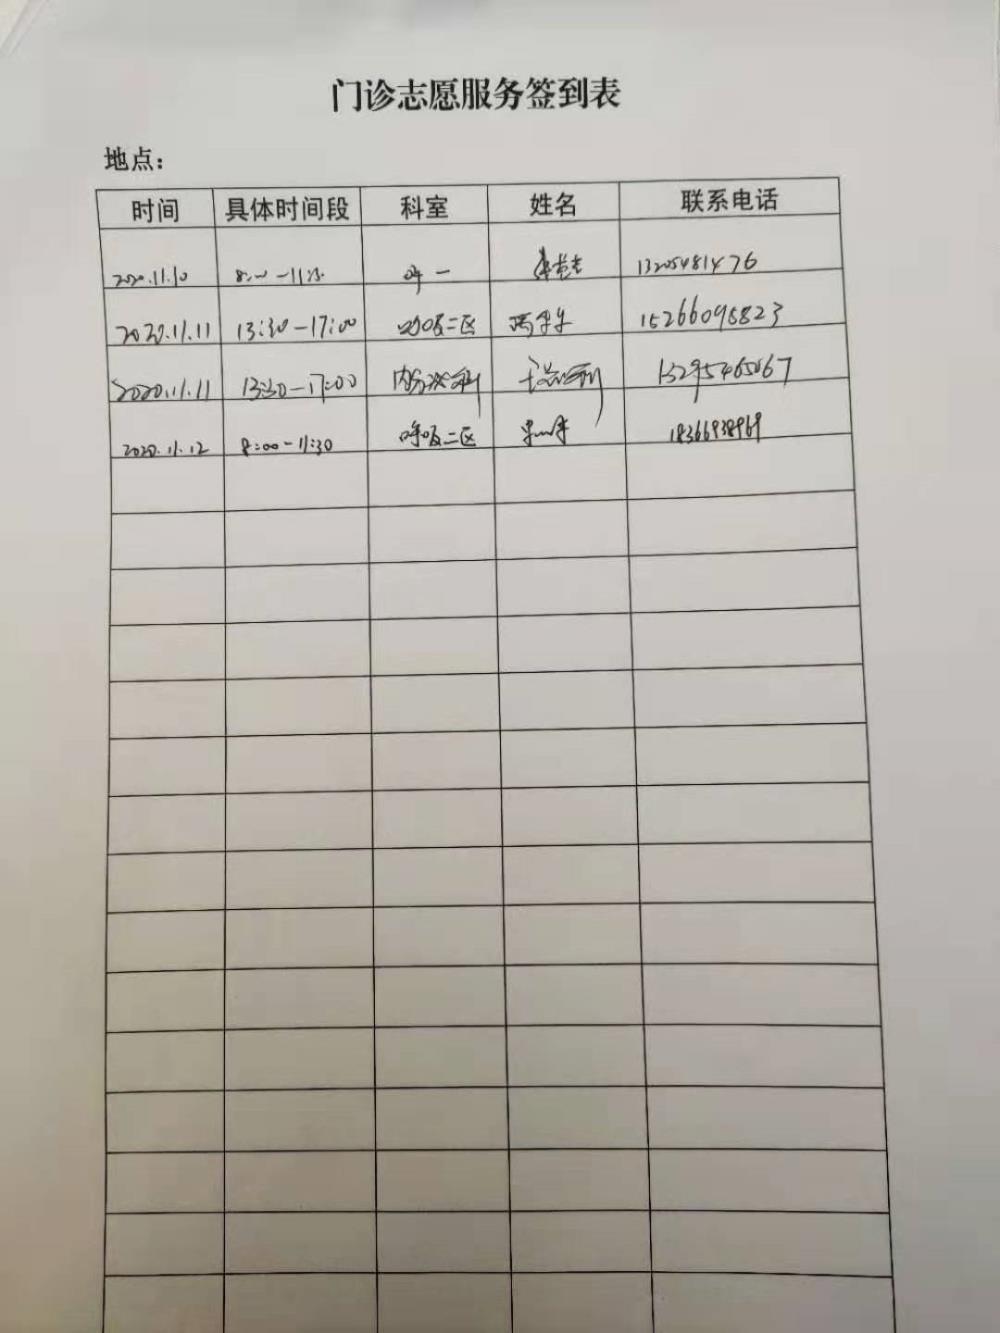 门诊志愿服务签到表
地点：
时间 具体时间段 科室 姓名 联系电话
2020.11.10 呼一 13205481476
2020.11.11 13:30-17:00 呼吸二区 15266095823
2020.11.11 13:30-17:00 内分泌科 13295465067
2020.11.12 8:00-11:30 呼吸二区 18366938969